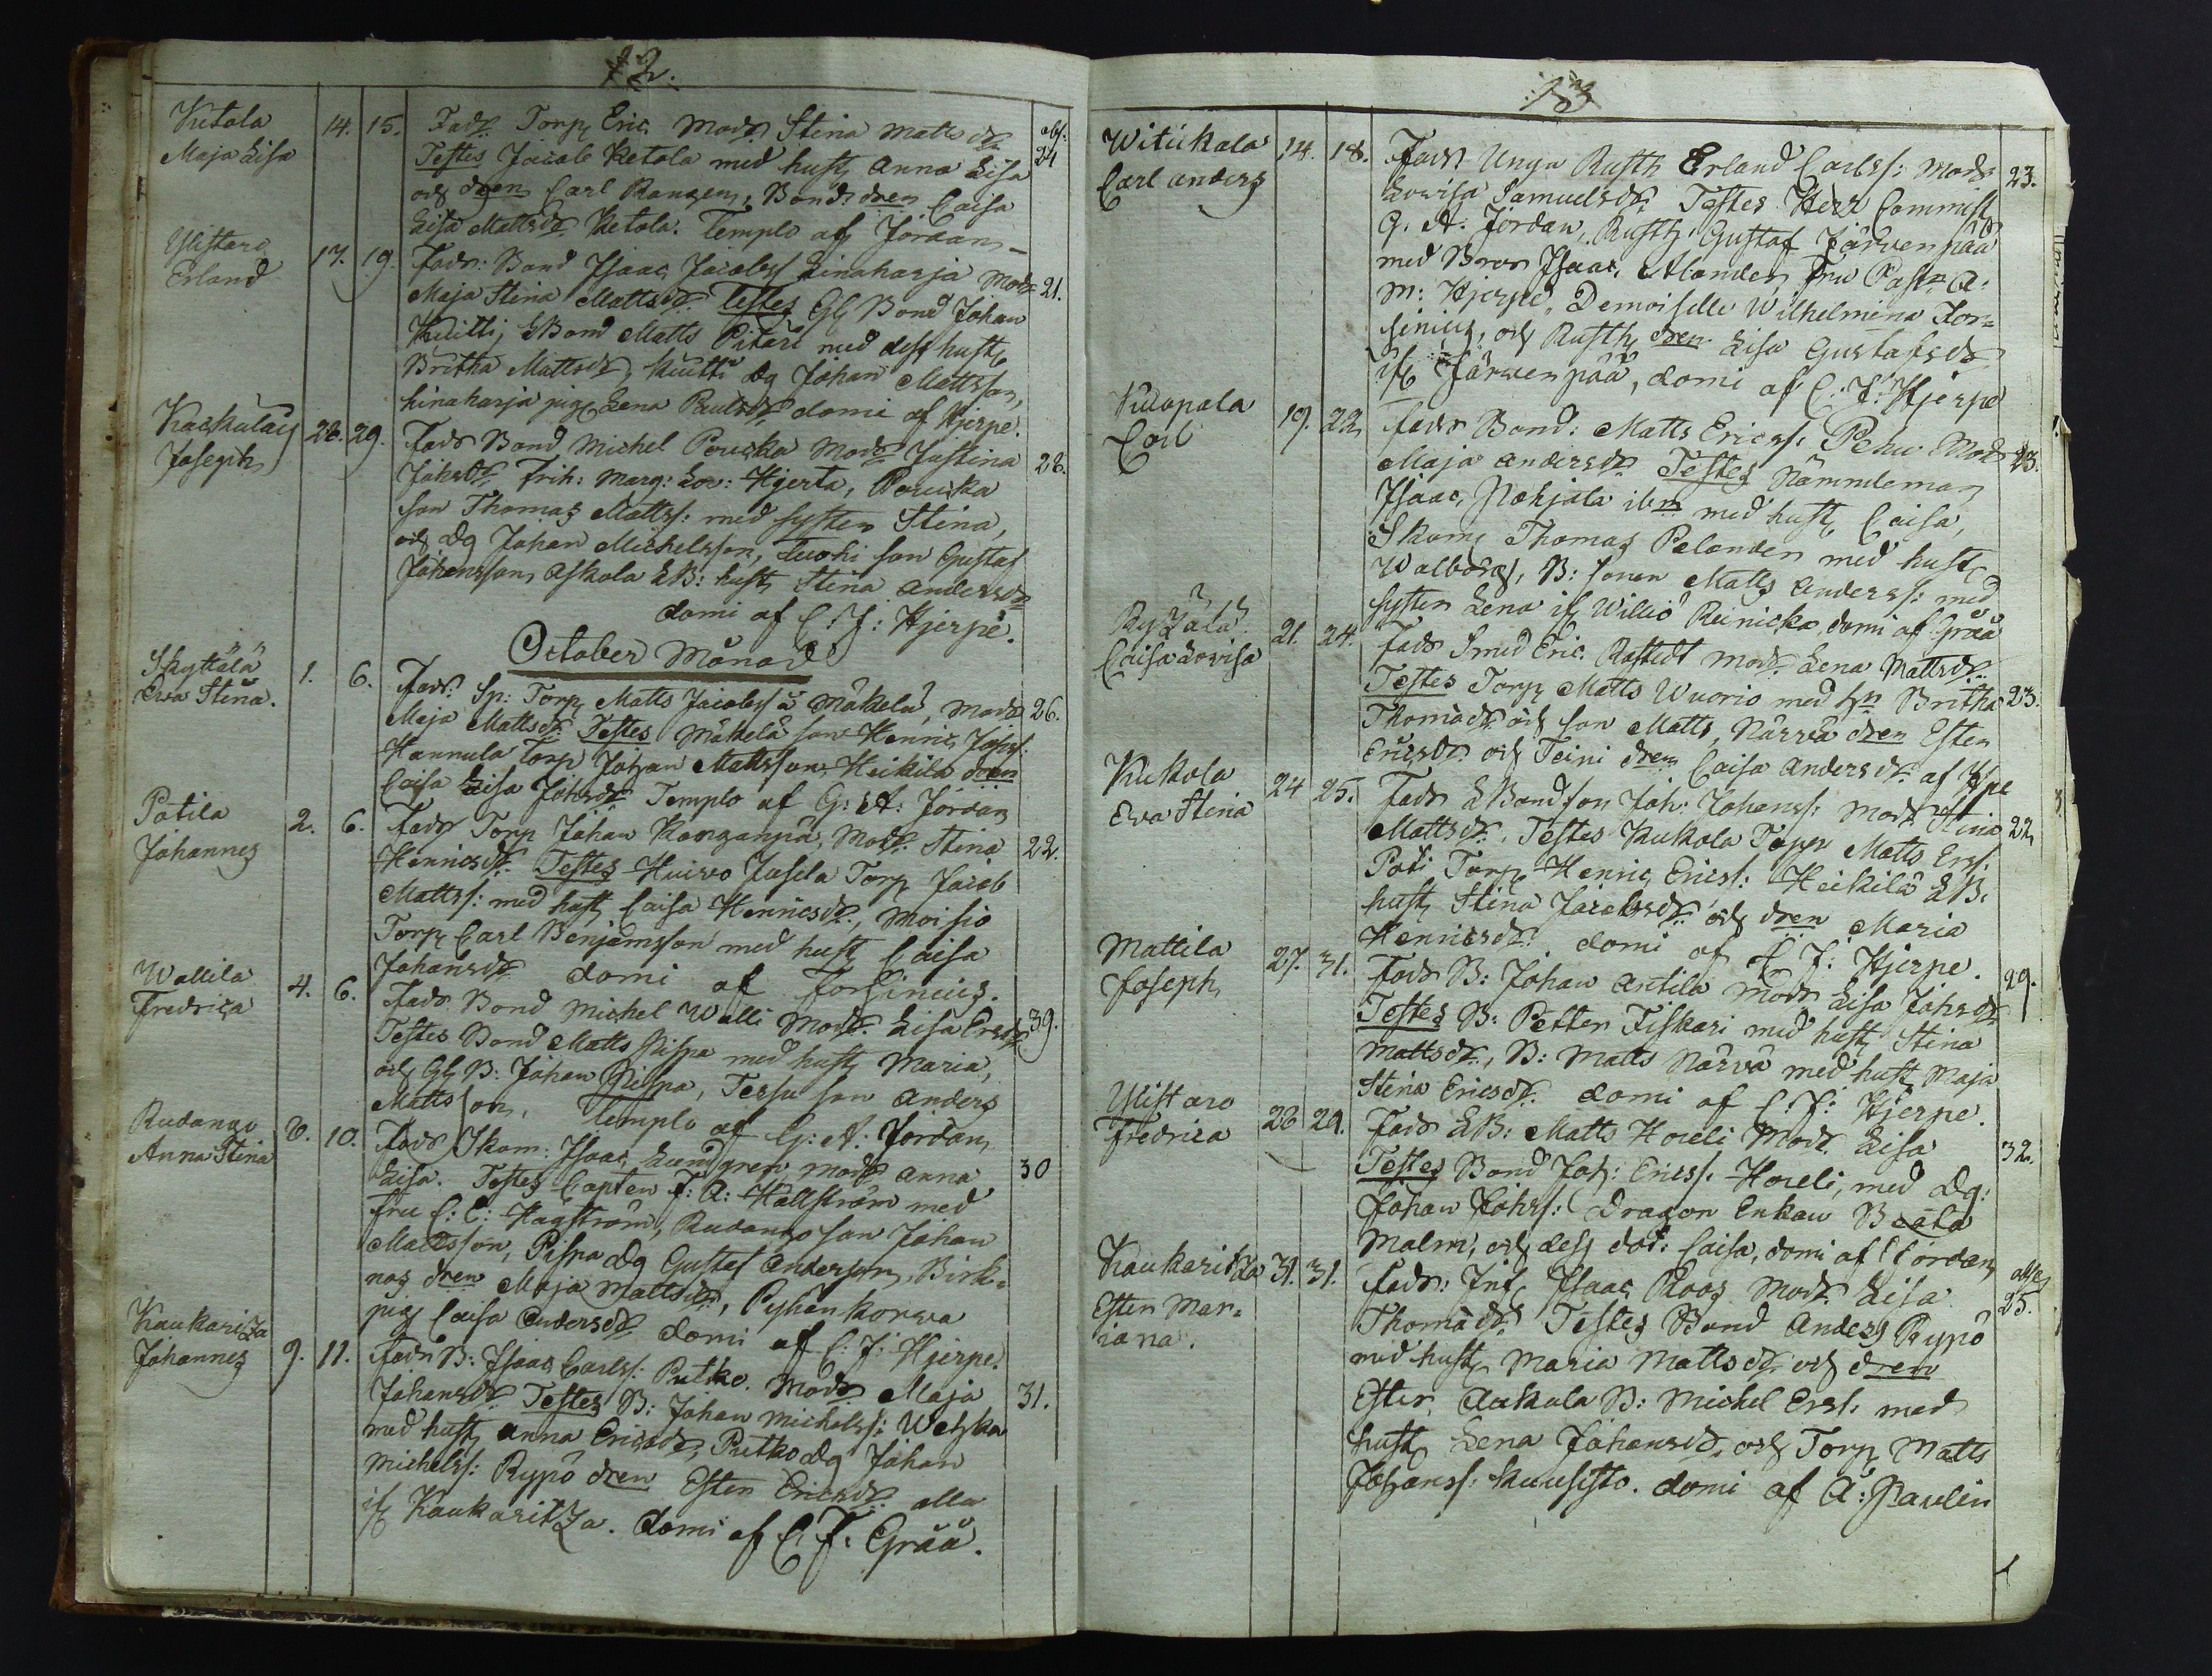 12.
Ketola 14. 15. Fadr. Torp. Eric. Modr. Stina Mattsdr. abs: 24
Maja Lisa Testes Jacob Ketola med hust. Anna Lisa
och dren Carl Bonds dren Caisa
Lisa Mattsdr. Ketola. Templo af Jordan
Ylistaro 17. 19. Fadr: Bond Isaac Jacobss Linaharja Modr. 21.
Erland Maja Stina Mattsdr. Testes Gl. Bond Johan
Kuitti, LBond Matts Pitäri med dess hust.
Britha Mattsdr, Kuitti dg Johan Mattsson,
Linaharja pig. Lena domi af Hjerpe.
28. 29. Fadr. Bond Michel Perucka Modr. Justina 28.
Joseph Johsdr. Frih: Marg: Lov: Hjerta, Perucka
son Thomas Mattss: med syster Stina,
och dg Johan Michelsson, son Gustaf
Johansson Askola LB: hust. Stina Andersdr
domi af C: J: Hjerpe.
October Månad
Skyttälä 1. 6. Fadr. Sp: Torp. Matts Jacobss Mäkelä, Modr. 26.
Eva Stina. Maja Mattsdr. Testes Mäkelä son Henric Johss:
Hannula Torp. Johan Mattsson, Heikilä dren
Caisa Lisa Johsdr Templo af G: A: Jordan
Potila 2. 6. Fadr Torp Johan Kanganpä, Modr. Stina 22.
Johannes Henricsdr. Testes Huivo Jusela Torp. Jacob
Mattss: med hust. Caisa Henricsdr., Moisio
Torp. Carl Benjamsson med hust. Caisa
Johansdr domi af Forsinius.
Wallila 4. 6. Fadr Bond Michel Walli Modr. Lisa Ersdr. 39.
Fredrica Testes Bond Matts Pispa med hust. Maria,
och Gl. B: Johan Pispa, Tersu son Anders
Mattsson, Templo af G: A: Jordan
Rudango 6. 10. Fadr Skom: Isaac Lundgren Modr Anna 30
Anna Stina Lisa. Testes Capten F: A: Hällström med
Fru C: C: Hagström, Rudango son Johan
Mattsson, Pispa dg Gustaf Andersson, Birk-
nas dren Maja Mattsdr, Pyhänkorwa
pig. Caisa Andersdr domi af C: J: Hjerpe.
Kaukaritza 9. 11. Fadr B: Isaac Carlss: Putko. Modr. Maja 31.
Johannes Johansdr Testes B: Johan Michelss: Wetzka
med hust. Anna Ericsdr, Putko dg Johan
Michelss: Rypö dren Ester Ericsdr alla
if. Kaukaritza. domi af C: F: Grää.
13
Witikala 14. 18. Fadr Unga Rusth. Erland Carlss: Modr 23.
Carl Anders Lovisa Samuelsdr. Testes Herr Commist.
G. A: Jordan, Rusth. Gustaf Järvenpää
med Bror Isaac, Alander, Fru Past: A:
M: Hjerpe, Demoiselle Wilhelmina For-
sinius, och Rusth. dren Lisa Gustafsdr
if. Järvenpää, domi af C: J: Hjerpe
Kuopala 19. 22. Fadr Bond: Matts Ericss: Pehu Modr 23.
Carl Maja Andersdr Testes Nämndeman
Isaac Pohjala ibm med hust. Caisa,
Skom: Thomas Pelander med hust.
Walborg, B: sonen Matts Anderss: med
syster Lena if. Willio Reinicka, domi af Grää
Ryzälä 21. 24. Fadr Smed Eric Rostedt Modr. Lena Mattsdr.
Caisa Lovisa Testes Torp. Matts Wuorio med hn Britha 23.
Thomædr. och son Matts, Närvä dren Ester
Ericsdr och Teini dren Caisa Andersdr. af Hpe
Kukola 24 25. Fadr LBondson Joh: Johanss: Modr Stina 22.
Eva Stina Mattsdr. Testes Kukola Matts Erss:
Poti Torp. Henric Ericss: Heikilä LB:
hust. Stina Jacobsdr. och dren Maria
Henricsdr. domi af C. J: Hjerpe.
Mattila 27. 31. Fadr B: Johan Antila Modr Lisa Johsdr 29.
Joseph Testes B: Petter Fiskari med hust. Stina
Mattsdr., B: Matts Närvä med hust. Maja
Stina Ericsdr. domi af C: J: Hjerpe.
Ylistaro 28 29. Fadr LB: Matts Houli Modr. Lisa 32.
Fredrica Testes Bond Joh: Ericss. Houli, med dg:
Johan Johss: Dragon Enkan Beata
Malm, och dess dot: Caisa, domi af Jordan
Kaukaritza 31. 31. Fadr: Inh. Isaac Roos Modr. Lisa 25.
Ester Mar- Thomædr. Testes Bond Anders Rypö
iana. med hust. Maria Mattsdr och dren
Ester, Aukula B: Michel Erss: med
hust. Lena Johansdr, och Torp. Matts
Johanss: Kuusisto. domi af A: Paulin